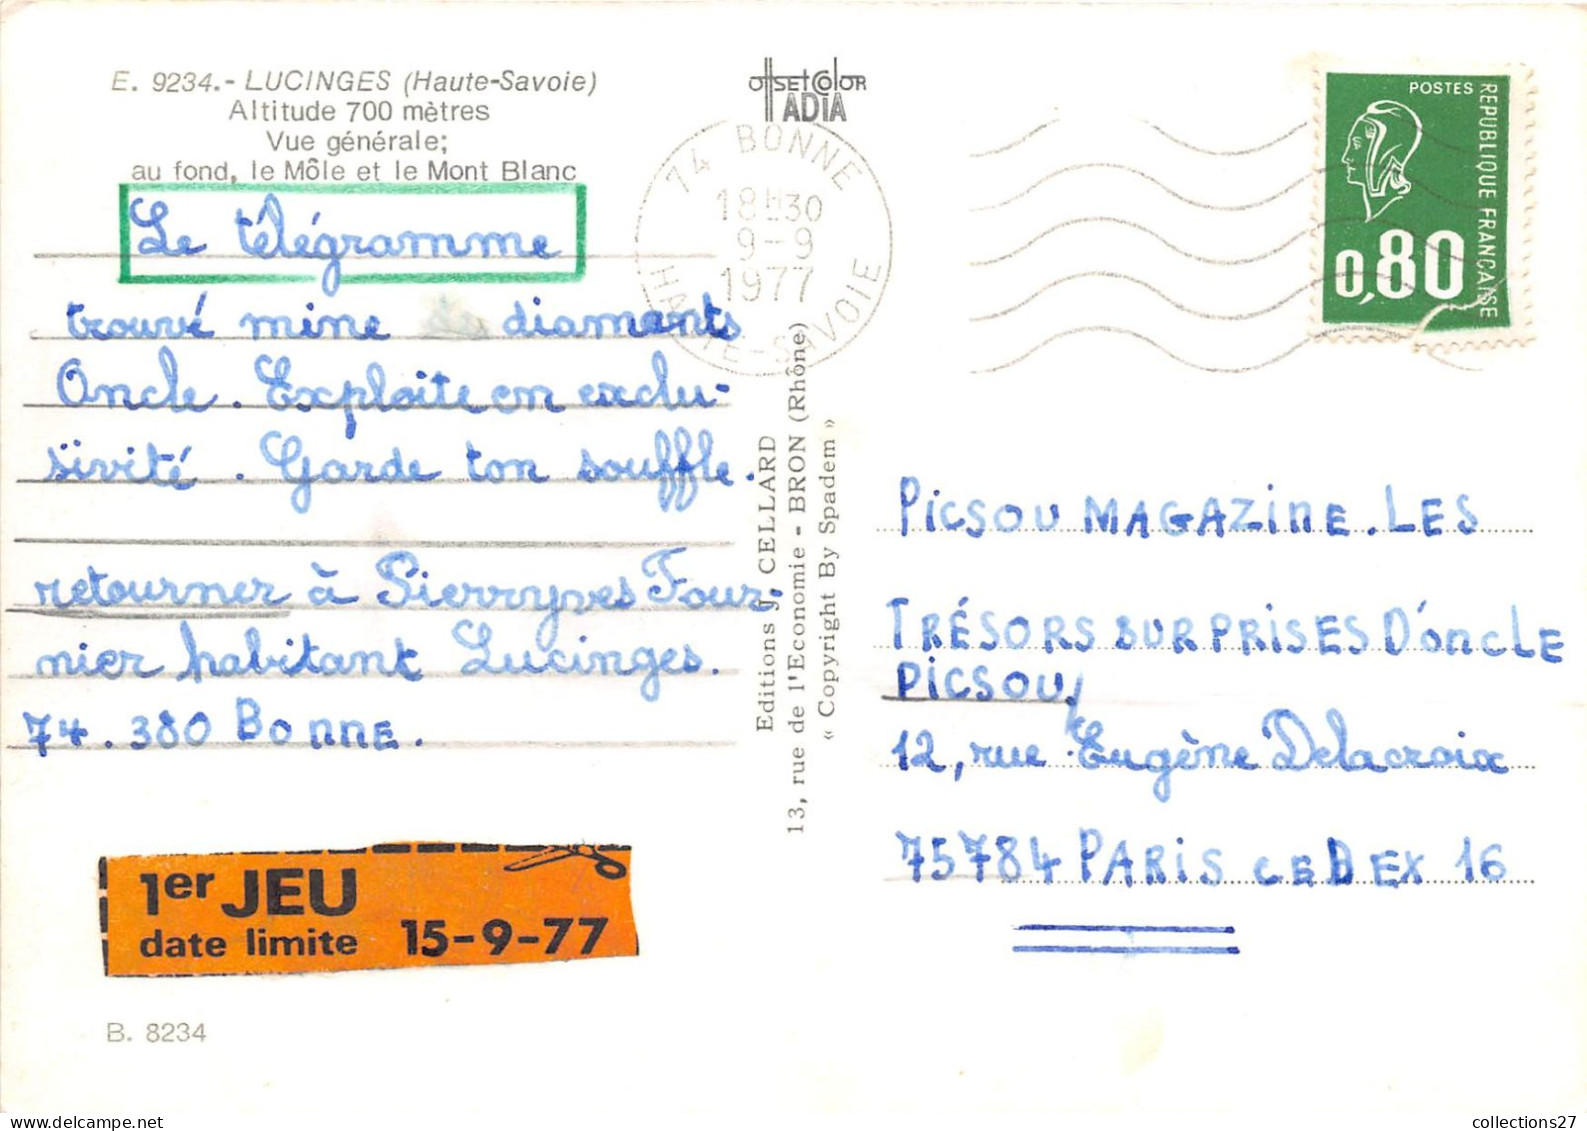 E. 9234.- LUCINGES (Haute-Savoie)
Altitude 700 mètres
Vue générale;
au fond, le Môle et le Mont Blanc
Le télégramme
trouvé mine de diamants
Oncle. Exploite en exclu-
sivité. Garde ton souffle.
retourner à Pierryves Four-
nier habitant Lucinges.
74.380 Bonne.
1er JEU
date limite 15-9-77
B. 8234
OffsetColor
ADIA
74 BONNE
18H30
9-9
1977
HAUTE-SAVOIE
Editions J. CELLARD
13, rue de l'Economie - BRON (Rhône)
« Copyright By Spadem »
POSTES
REPUBLIQUE FRANÇAISE
0,80
PICSOU MAGAZINE. LES
TRÉSORS SURPRISES D'ONCLE
PICSOU,
12, rue Eugène Delacroix
75784 PARIS CEDEX 16
collections27